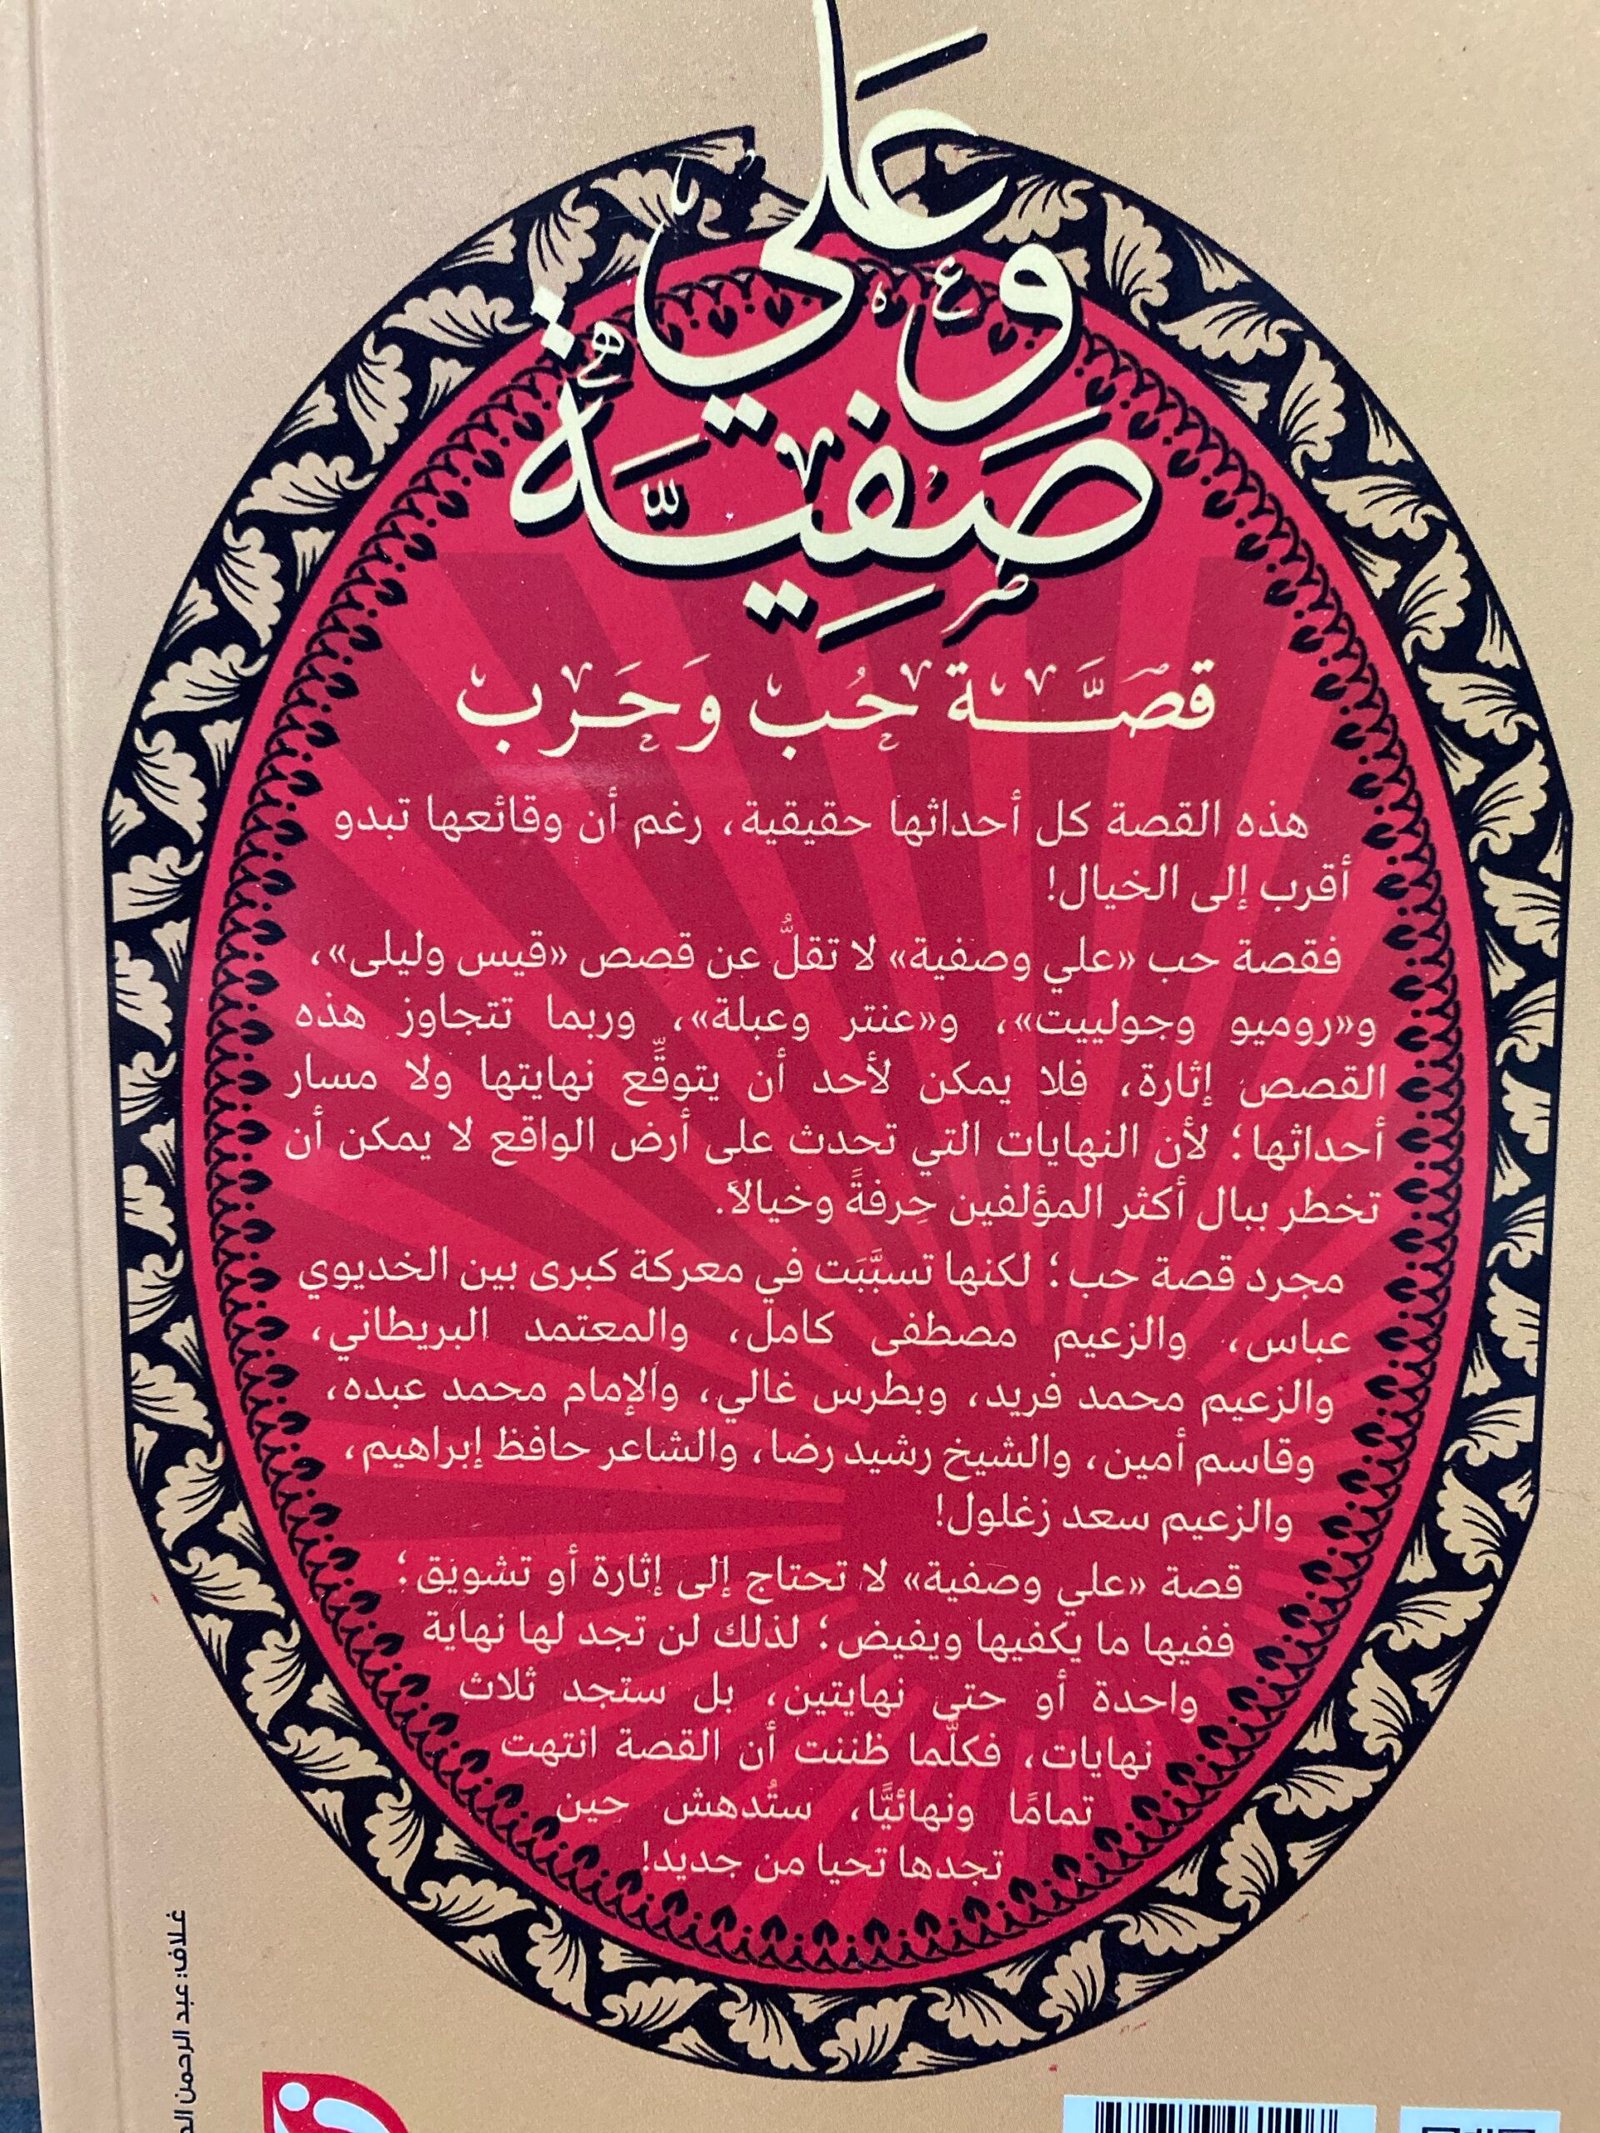 وعَلي
صَفِيَّة
قصَّة حُب وَحَرب
هذه القصة كل أحداثها حقيقية، رغم أن وقائعها تبدو
أقرب إلى الخيال!
فقصة حب «علي وصفية» لا تقلُّ عن قصص «قيس وليلى»،
و«روميو وجولييت»، و«عنتر وعبلة»، وربما تتجاوز هذه
القصص إثارة، فلا يمكن لأحد أن يتوقَّع نهايتها ولا مسار
أحداثها؛ لأن النهايات التي تحدث على أرض الواقع لا يمكن أن
تخطر ببال أكثر المؤلفين حِرفةً وخيالاً.
مجرد قصة حب؛ لكنها تسبَّبَت في معركة كبرى بين الخديوي
عباس، والزعيم مصطفى كامل، والمعتمد البريطاني،
والزعيم محمد فريد، وبطرس غالي، والإمام محمد عبده،
وقاسم أمين، والشيخ رشيد رضا، والشاعر حافظ إبراهيم،
والزعيم سعد زغلول!
قصة «علي وصفية» لا تحتاج إلى إثارة أو تشويق؛
ففيها ما يكفيها ويفيض؛ لذلك لن تجد لها نهاية
واحدة أو حتى نهايتين، بل ستجد ثلاث
نهايات، فكلَّما ظننت أن القصة انتهت
تمامًا ونهائيًّا، ستُدهش حين
تجدها تحيا من جديد!
غلاف: عبد الرحمن